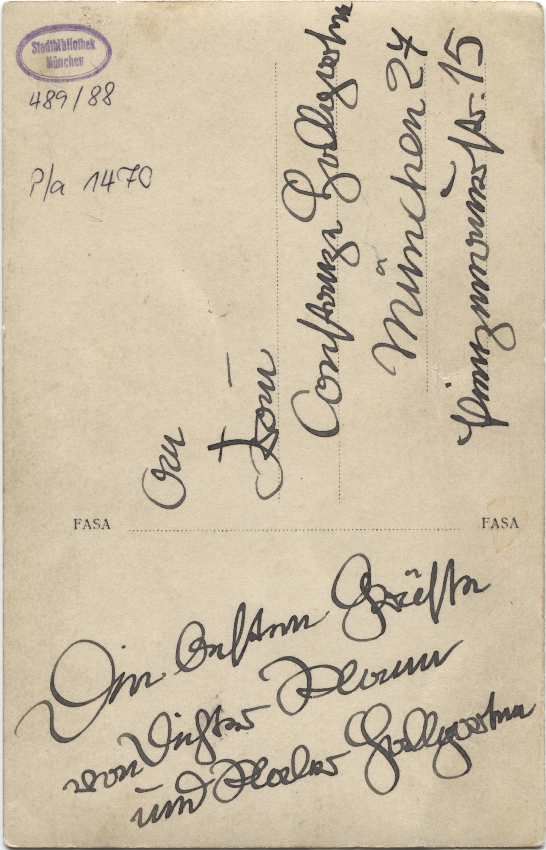 Stadtbibliothek
München
489/88
P/a 1470
An
Frau
Constanze Hallgarten
München 27
Pienzenauerstr. 15
FASA
FASA
Die besten Grüße
von Dichter Mann
und Maler Hallgarten